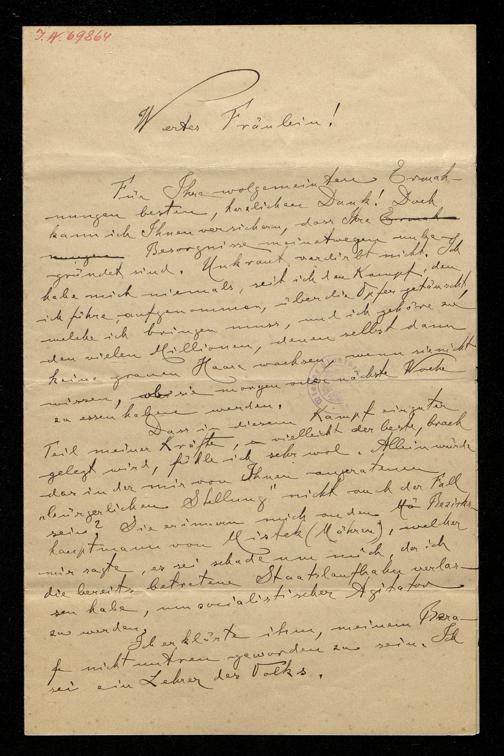 I.N. 69864
Wertes Fräulein!
Für Ihre wolgemeinten Ermah-
nungen besten, herzlichen Dank! Doch
kann ich Ihnen versichern, dass Ihre Ermah
nungen Besorgnisse meinetwegen unbe-
gründet sind. Unkraut verdirbt nicht. Ich
habe mich niemals, seit ich den Kampf, den
ich führe aufgenommen, über die Opfer getäuscht,
welche ich bringen muss, und ich gehöre zu
den vielen Millionen, denen selbst dann
keine grauen Haare wachsen, wenn sie nicht
wissen, ob sie morgen oder nächste Woche
zu essen haben werden.
Dass in diesem Kampf ein guter
Teil meiner Kräfte, vielleicht der beste, brach
gelegt wird, fühle ich sehr wol. Allein würde
das in der mir von Ihnen angeratenen
„bürgerlichen Stellung" nicht auch der Fall
sein? Sie erinnern mich an den Bezirks-
hauptmann von Mistek (Mähren), welcher
mir sagte, es sei schade um mich, da ich
die bereits betretene Staatslaufbahn verlas-
sen habe, um socialistischer Agitator
zu werden.
Ich erklärte ihm, meinem Beru-
fe nicht untreu geworden zu sein. Ich
sei ein Lehrer des Volks.